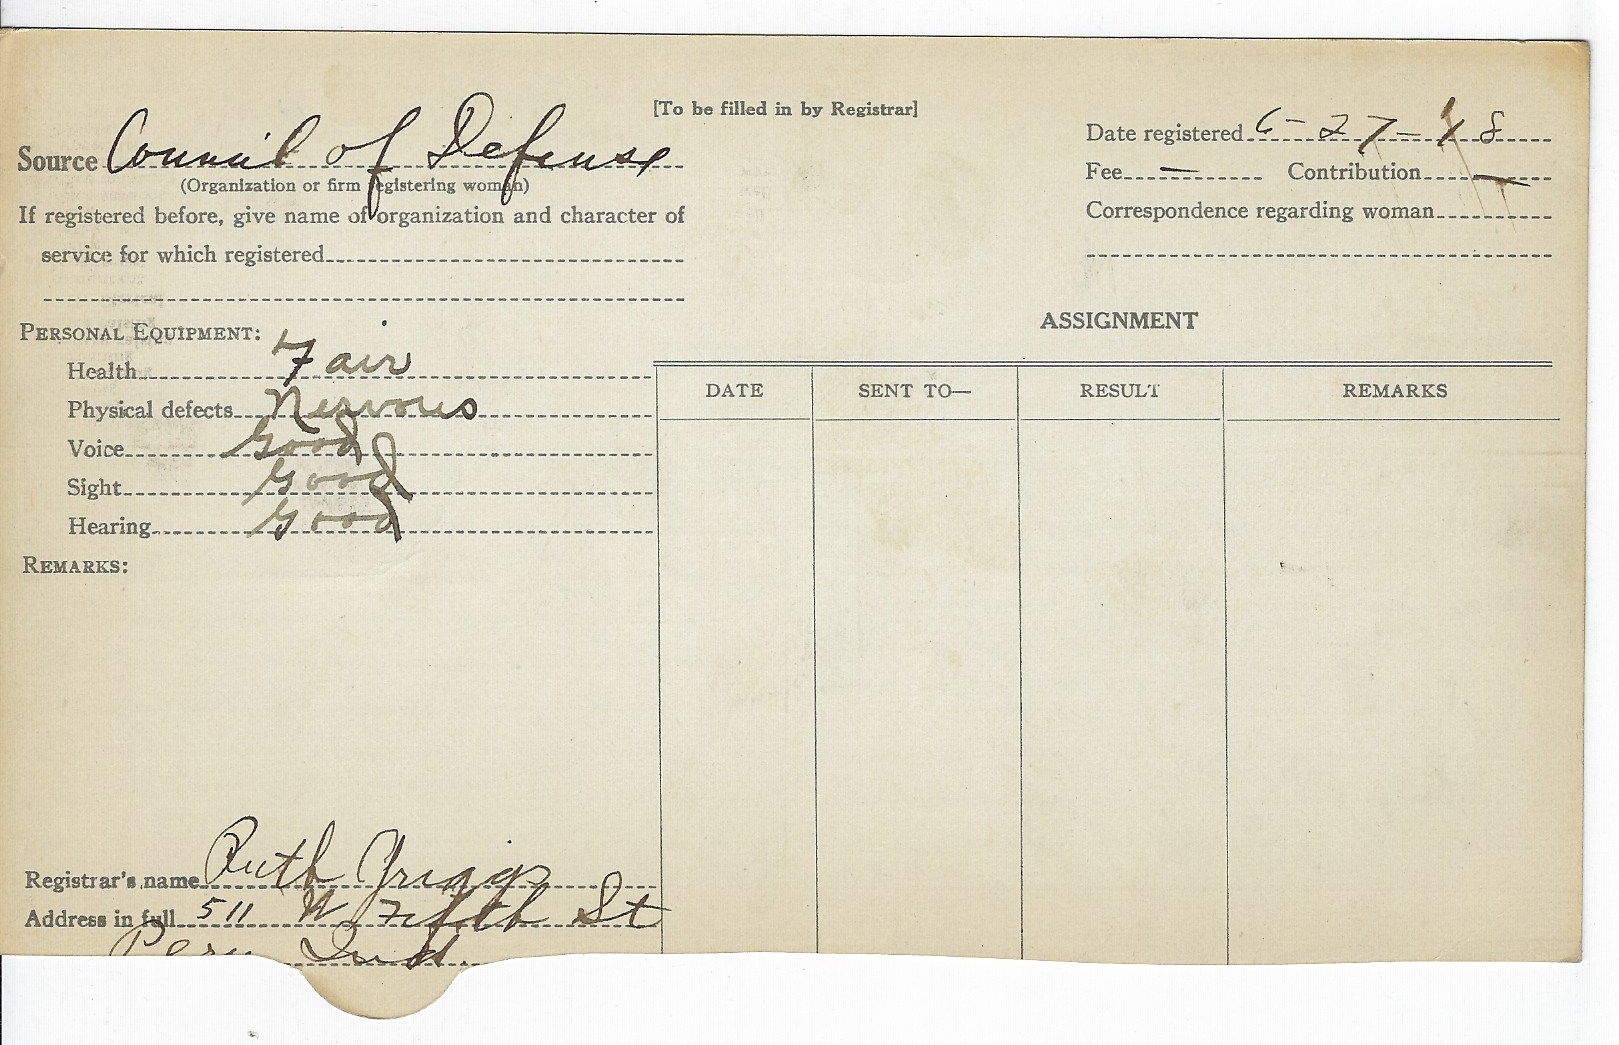 [To be filled in by Registrar]
Source Council of Defense
(Organization or firm registering woman)
If registered before, give name of organization and character of
service for which registered
Date registered 6-27-18
Fee — Contribution —
Correspondence regarding woman
PERSONAL EQUIPMENT:
Health Fair
Physical defects Nervous
Voice Good
Sight Good
Hearing Good
REMARKS:
ASSIGNMENT
DATE SENT TO— RESULT REMARKS
Registrar's name Ruth Griggs
Address in full 511 W Fifth St
Peru Ind.